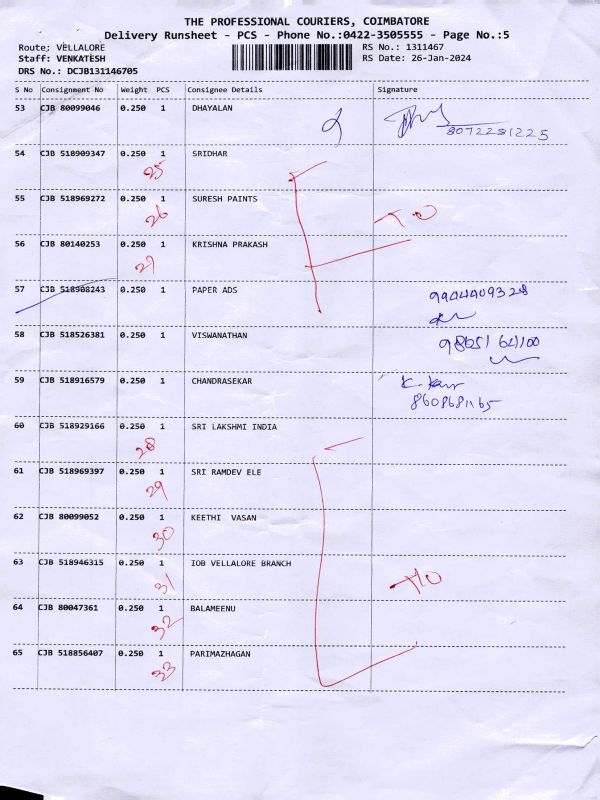 THE PROFESSIONAL COURIERS, COIMBATORE
Delivery Runsheet - PCS - Phone No.:0422-3505555 - Page No.:5
Route: VELLALORE RS No.: 1311467
Staff: VENKATESH RS Date: 26-Jan-2024
DRS No.: DCJB131146705
S No Consignment No Weight PCS Consignee Details Signature
53 CJB 80099046 0.250 1 DHAYALAN
8072231225
54 CJB 518909347 0.250 1 SRIDHAR
25
55 CJB 518969272 0.250 1 SURESH PAINTS
26
56 CJB 80140253 0.250 1 KRISHNA PRAKASH
27
57 CJB 518908243 0.250 1 PAPER ADS 9944409328
58 CJB 518526381 0.250 1 VISWANATHAN 9865164100
59 CJB 518916579 0.250 1 CHANDRASEKAR
8608681165
60 CJB 518929166 0.250 1 SRI LAKSHMI INDIA
28
61 CJB 518969397 0.250 1 SRI RAMDEV ELE
29
62 CJB 80099052 0.250 1 KEETHI VASAN
30
63 CJB 518946315 0.250 1 IOB VELLALORE BRANCH
31
64 CJB 80047361 0.250 1 BALAMEENU
32
65 CJB 518856407 0.250 1 PARIMAZHAGAN
33